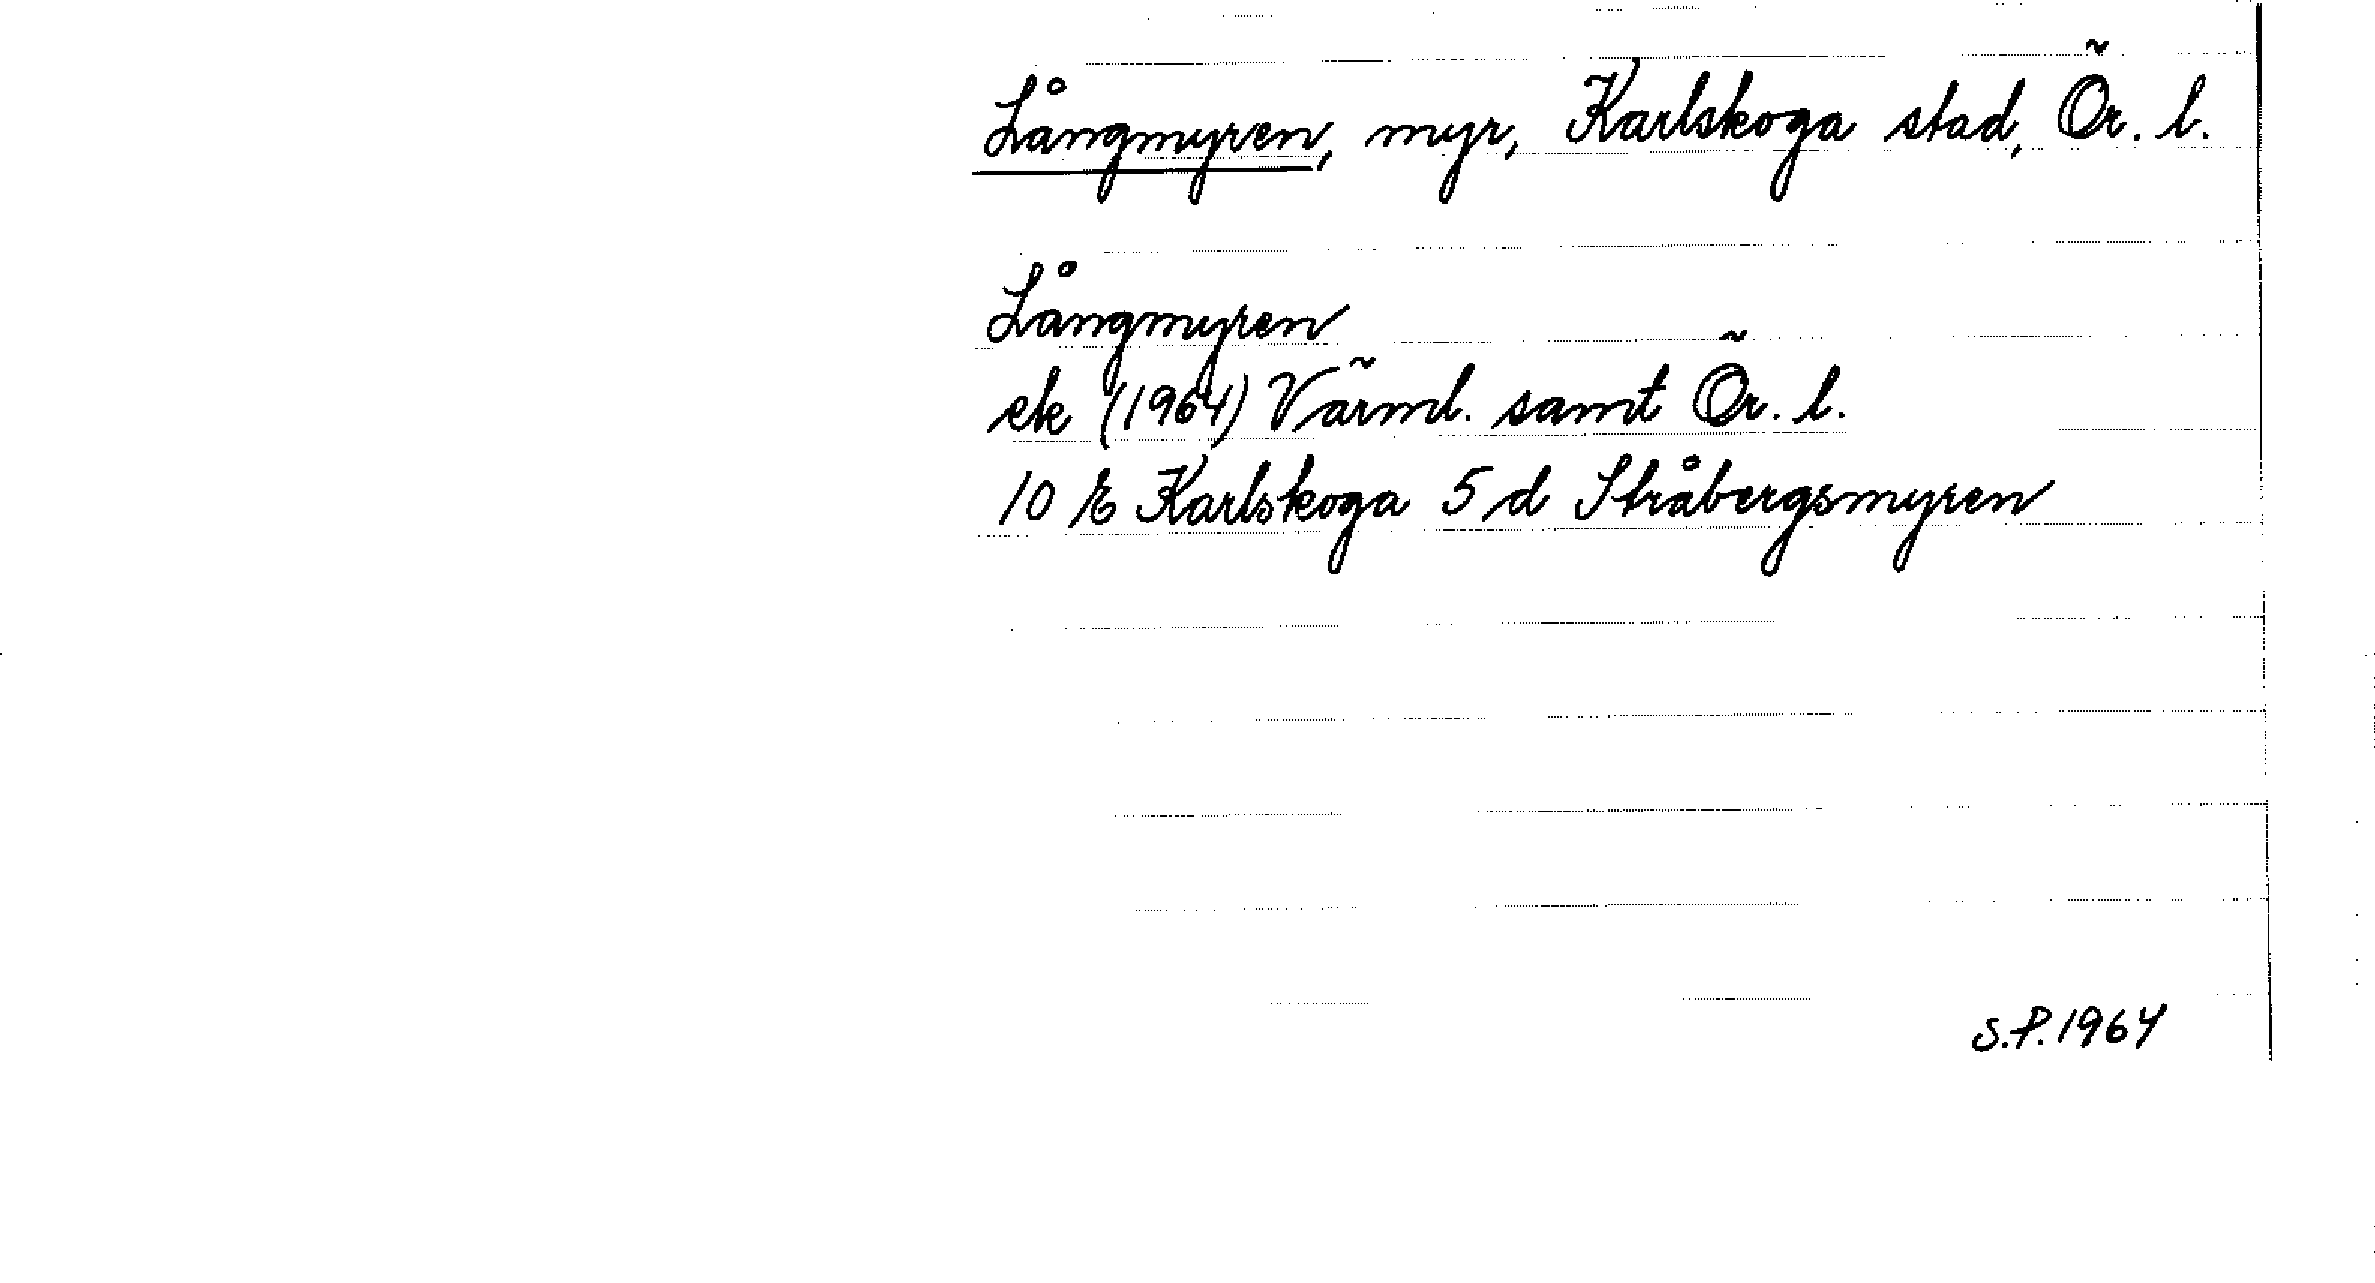 Långmyren, myr, Karlskoga stad, Ör. l.
Långmyren
ek (1964) Värml. samt Ör. l.
10 E Karlskoga 5 d Stråbergsmyren
S.P. 1964